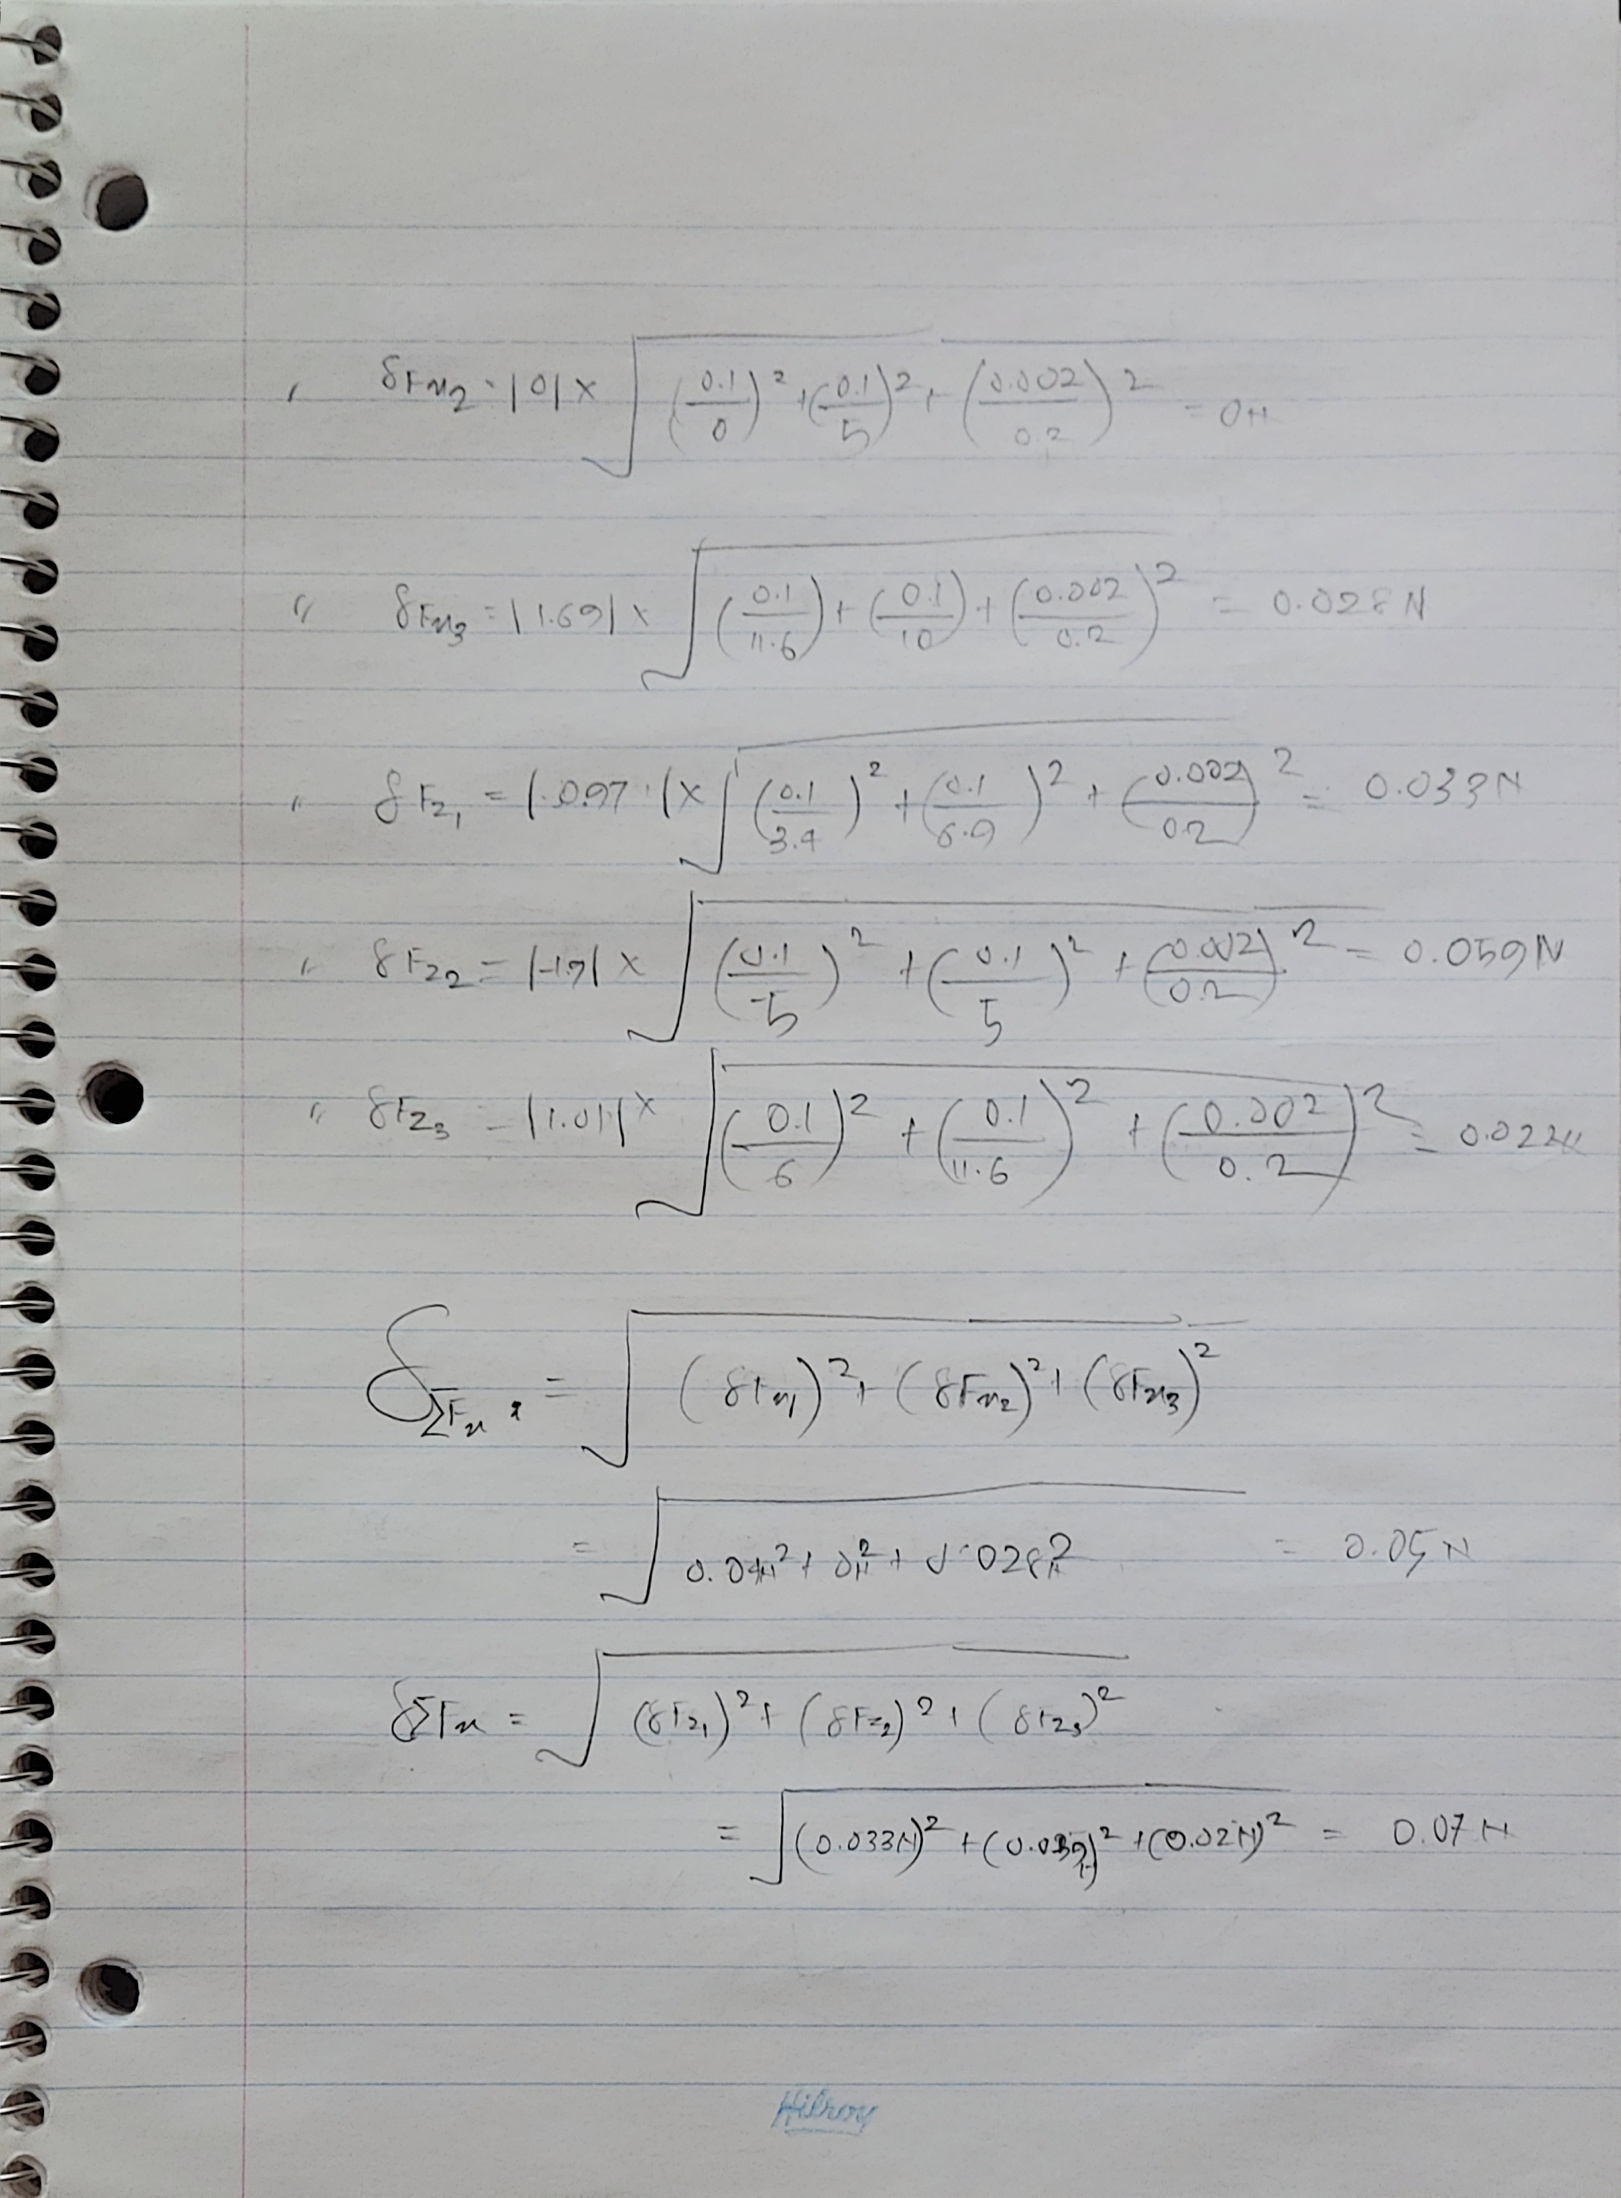 " δFx₂ = |0| × √((0.1/0)² + (0.1/5)² + (0.002/0.2)²) = 0N
" δFx₃ = |1.69| × √((0.1/11.6) + (0.1/10) + (0.002/0.2)²) = 0.028N
" δF₂₁ = |-0.97| × √((0.1/3.4)² + (0.1/6.9)² + (0.002/0.2)² = 0.033N
" δF₂₂ = |-1.9| × √((0.1/-5)² + (0.1/5)² + (0.002/0.2)² = 0.059N
" δF₂₃ = |1.01| × √((0.1/6)² + (0.1/11.6)² + (0.002/0.2)² = 0.022N
δΣFx = √((δFx₁)² + (δFx₂)² + (δFx₃)²
= √(0.04N² + 0N² + 0.028N²) = 0.05N
δΣFx = √((δF₂₁)² + (δF₂₂)² + (δF₂₃)²
= √((0.033N)² + (0.059N)² + (0.02N)² = 0.07N
Hilroy